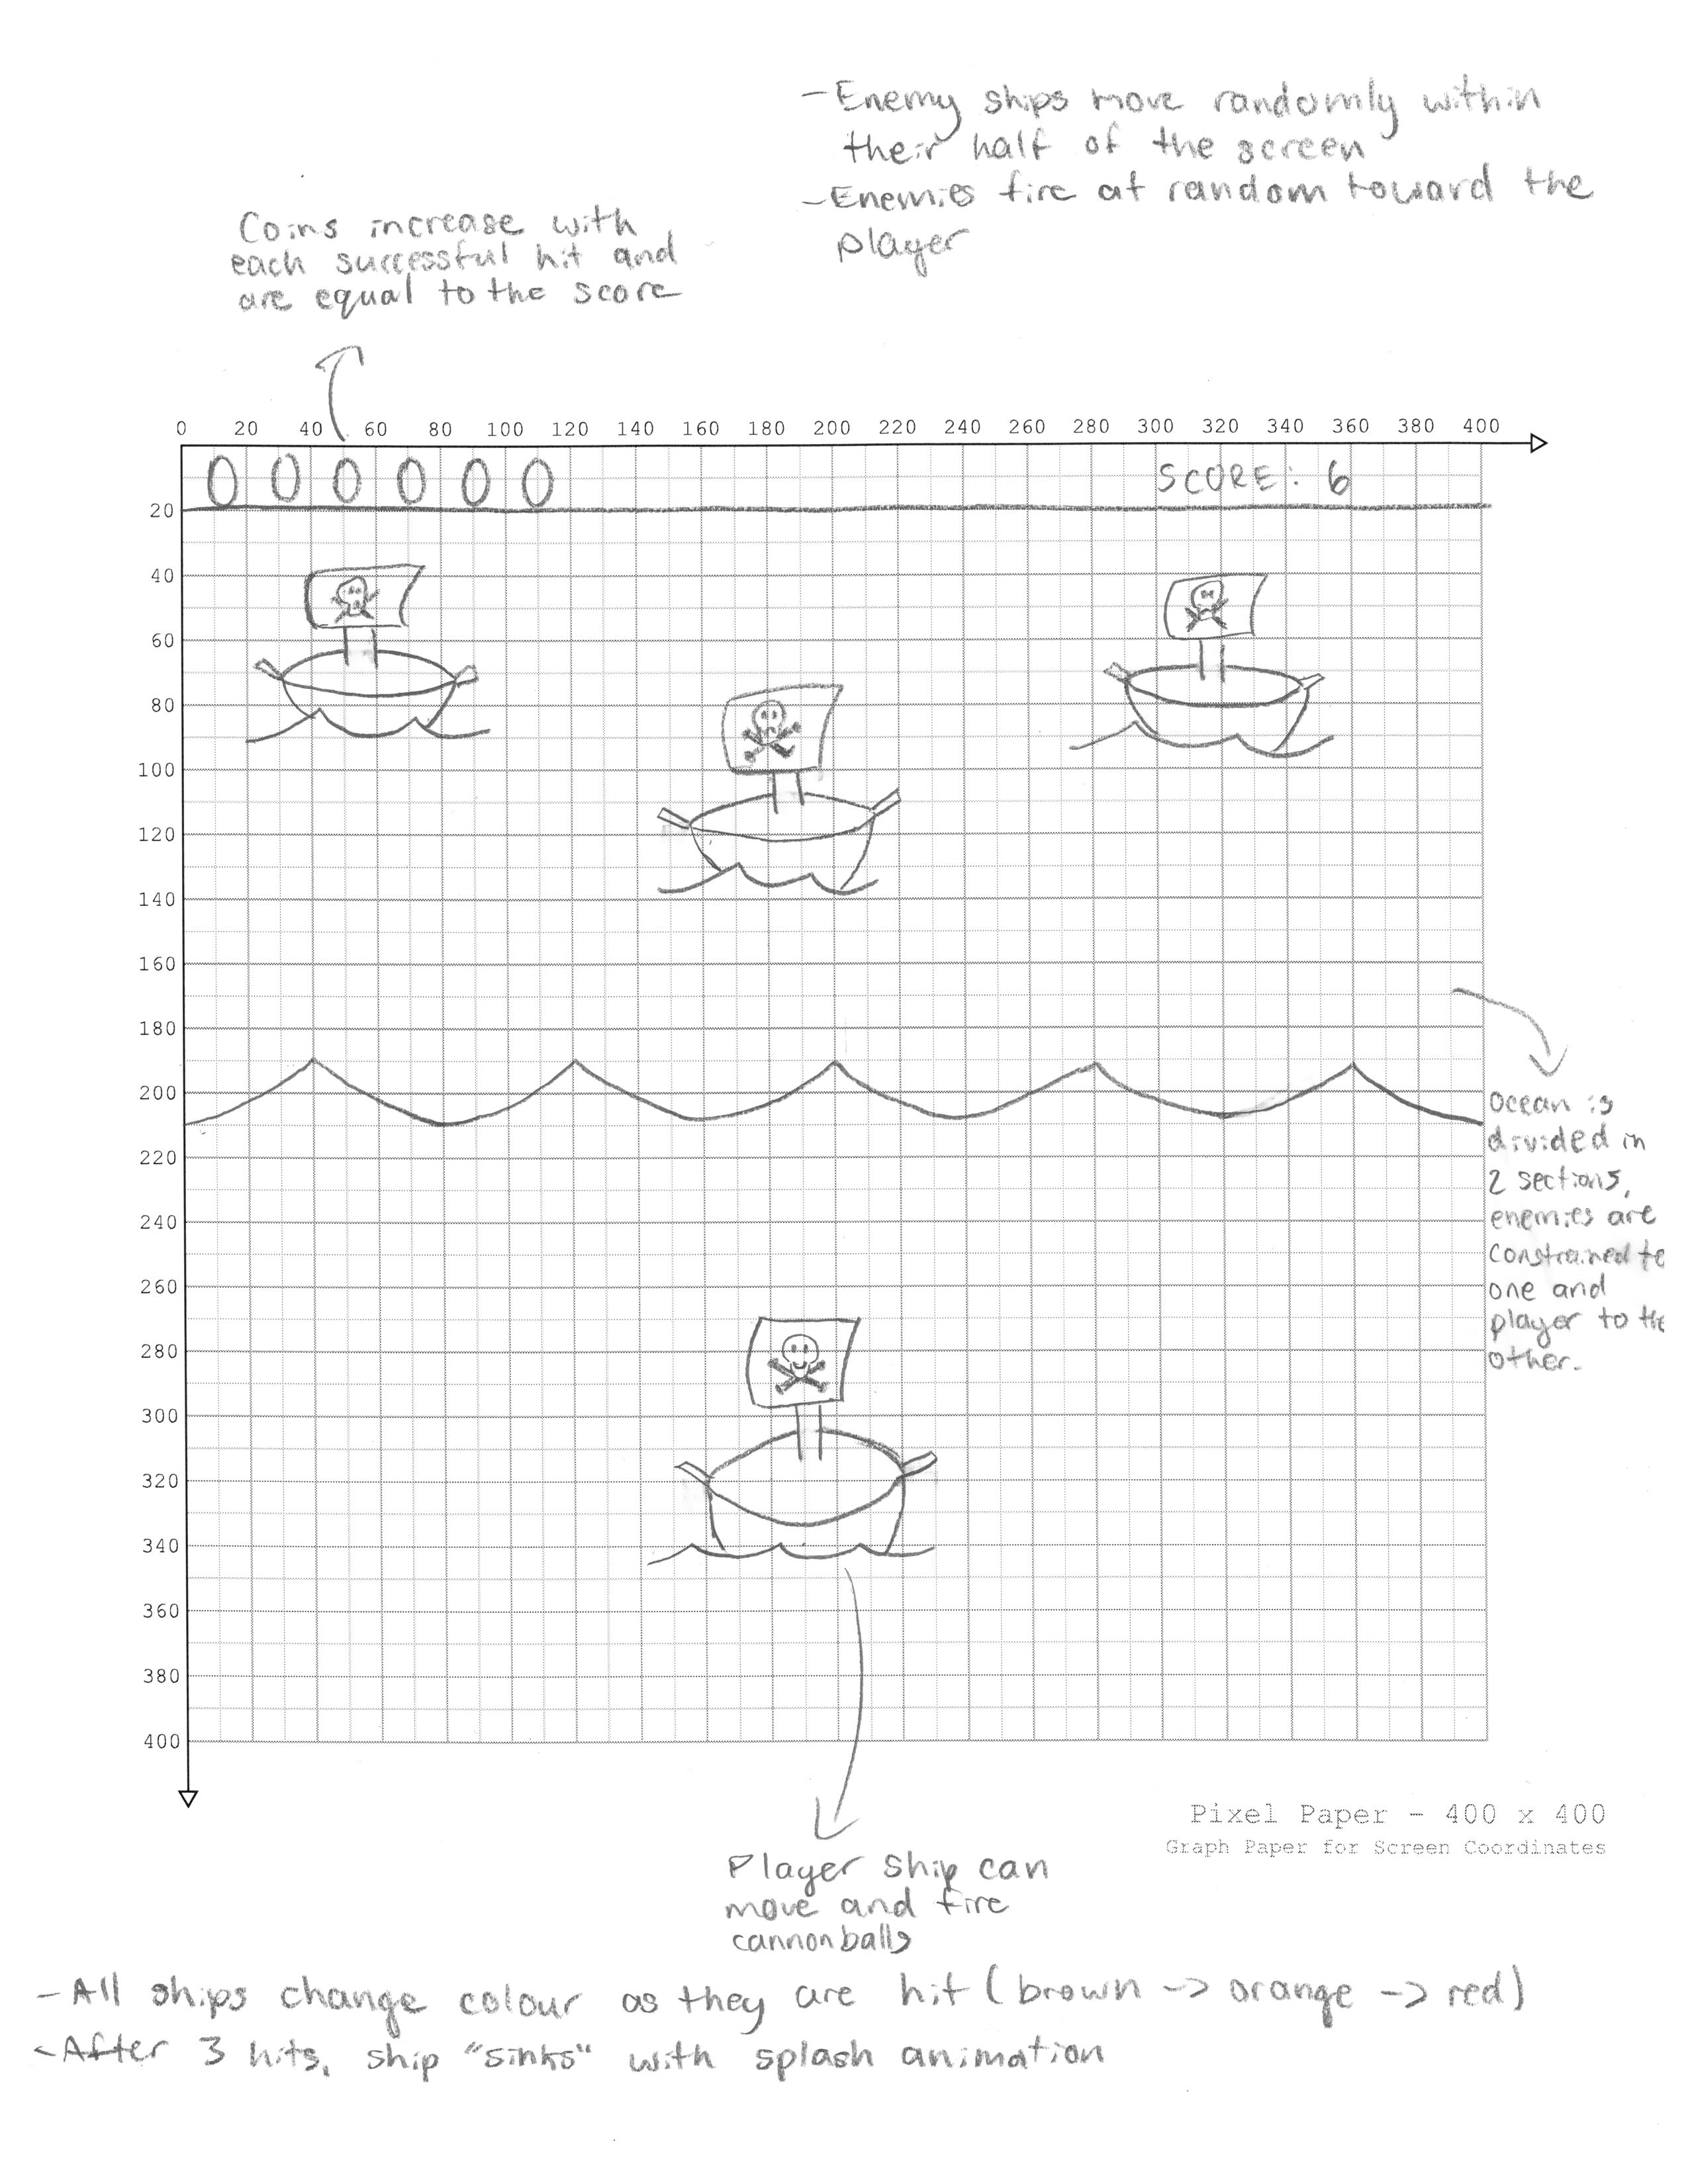 -Enemy ships move randomly within
their half of the screen
-Enemies fire at random toward the
player
Coins increase with
each successful hit and
are equal to the score
0 20 40 60 80 100 120 140 160 180 200 220 240 260 280 300 320 340 360 380 400
SCORE: 6
20
40
60
80
100
120
140
160
180
200
220
240
260
280
300
320
340
360
380
400
Ocean is
divided in
2 sections,
enemies are
constrained to
one and
player to the
other.
Pixel Paper - 400 x 400
Graph Paper for Screen Coordinates
Player ship can
move and fire
cannonballs
-All ships change colour as they are hit (brown -> orange -> red)
-After 3 hits, ship "sinks" with splash animation